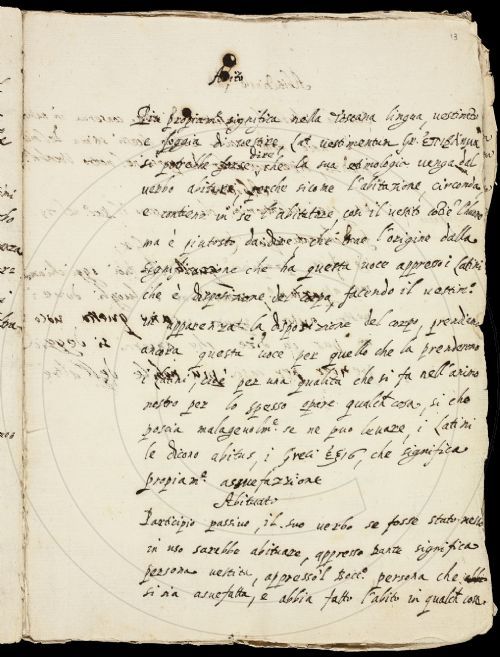 13
Abito
Più propiam.te significa nella Toscana lingua vestimento
e foggia di vestire, lat. vestimentum Gr.
si potrebbe forse dire che la sua etimologia venga dal
verbo abitare, perche sicome l'abitazione circonda
e contiene in se l'abitatore, così il vestito
ma è piutosto da dire che trae l'origine dalla
significazione che ha questa voce appresso i latini
che è disposizione del corpo, facendo il vestim.to
in apparenza la disposizione del corpo, prendesi
ancora questa voce per quello che la prenderono
i latini, cioè per una qualità che si fa nell'animo
nostro per lo spesso oprare qualche cosa, si che
poscia malagevolm.te se ne puo levare, i latini
le dicono abitus, i Greci ἕξις, che significa
propiam.te assuefazione
Abituato
Participio passivo, il suo verbo se fosse stato messo
in uso sarebbe abituare, appresso Dante significa
persona vestita, appresso'l Bocc.o persona che
si sia asuefatta, e abbia fatto l'abito in qualche cosa